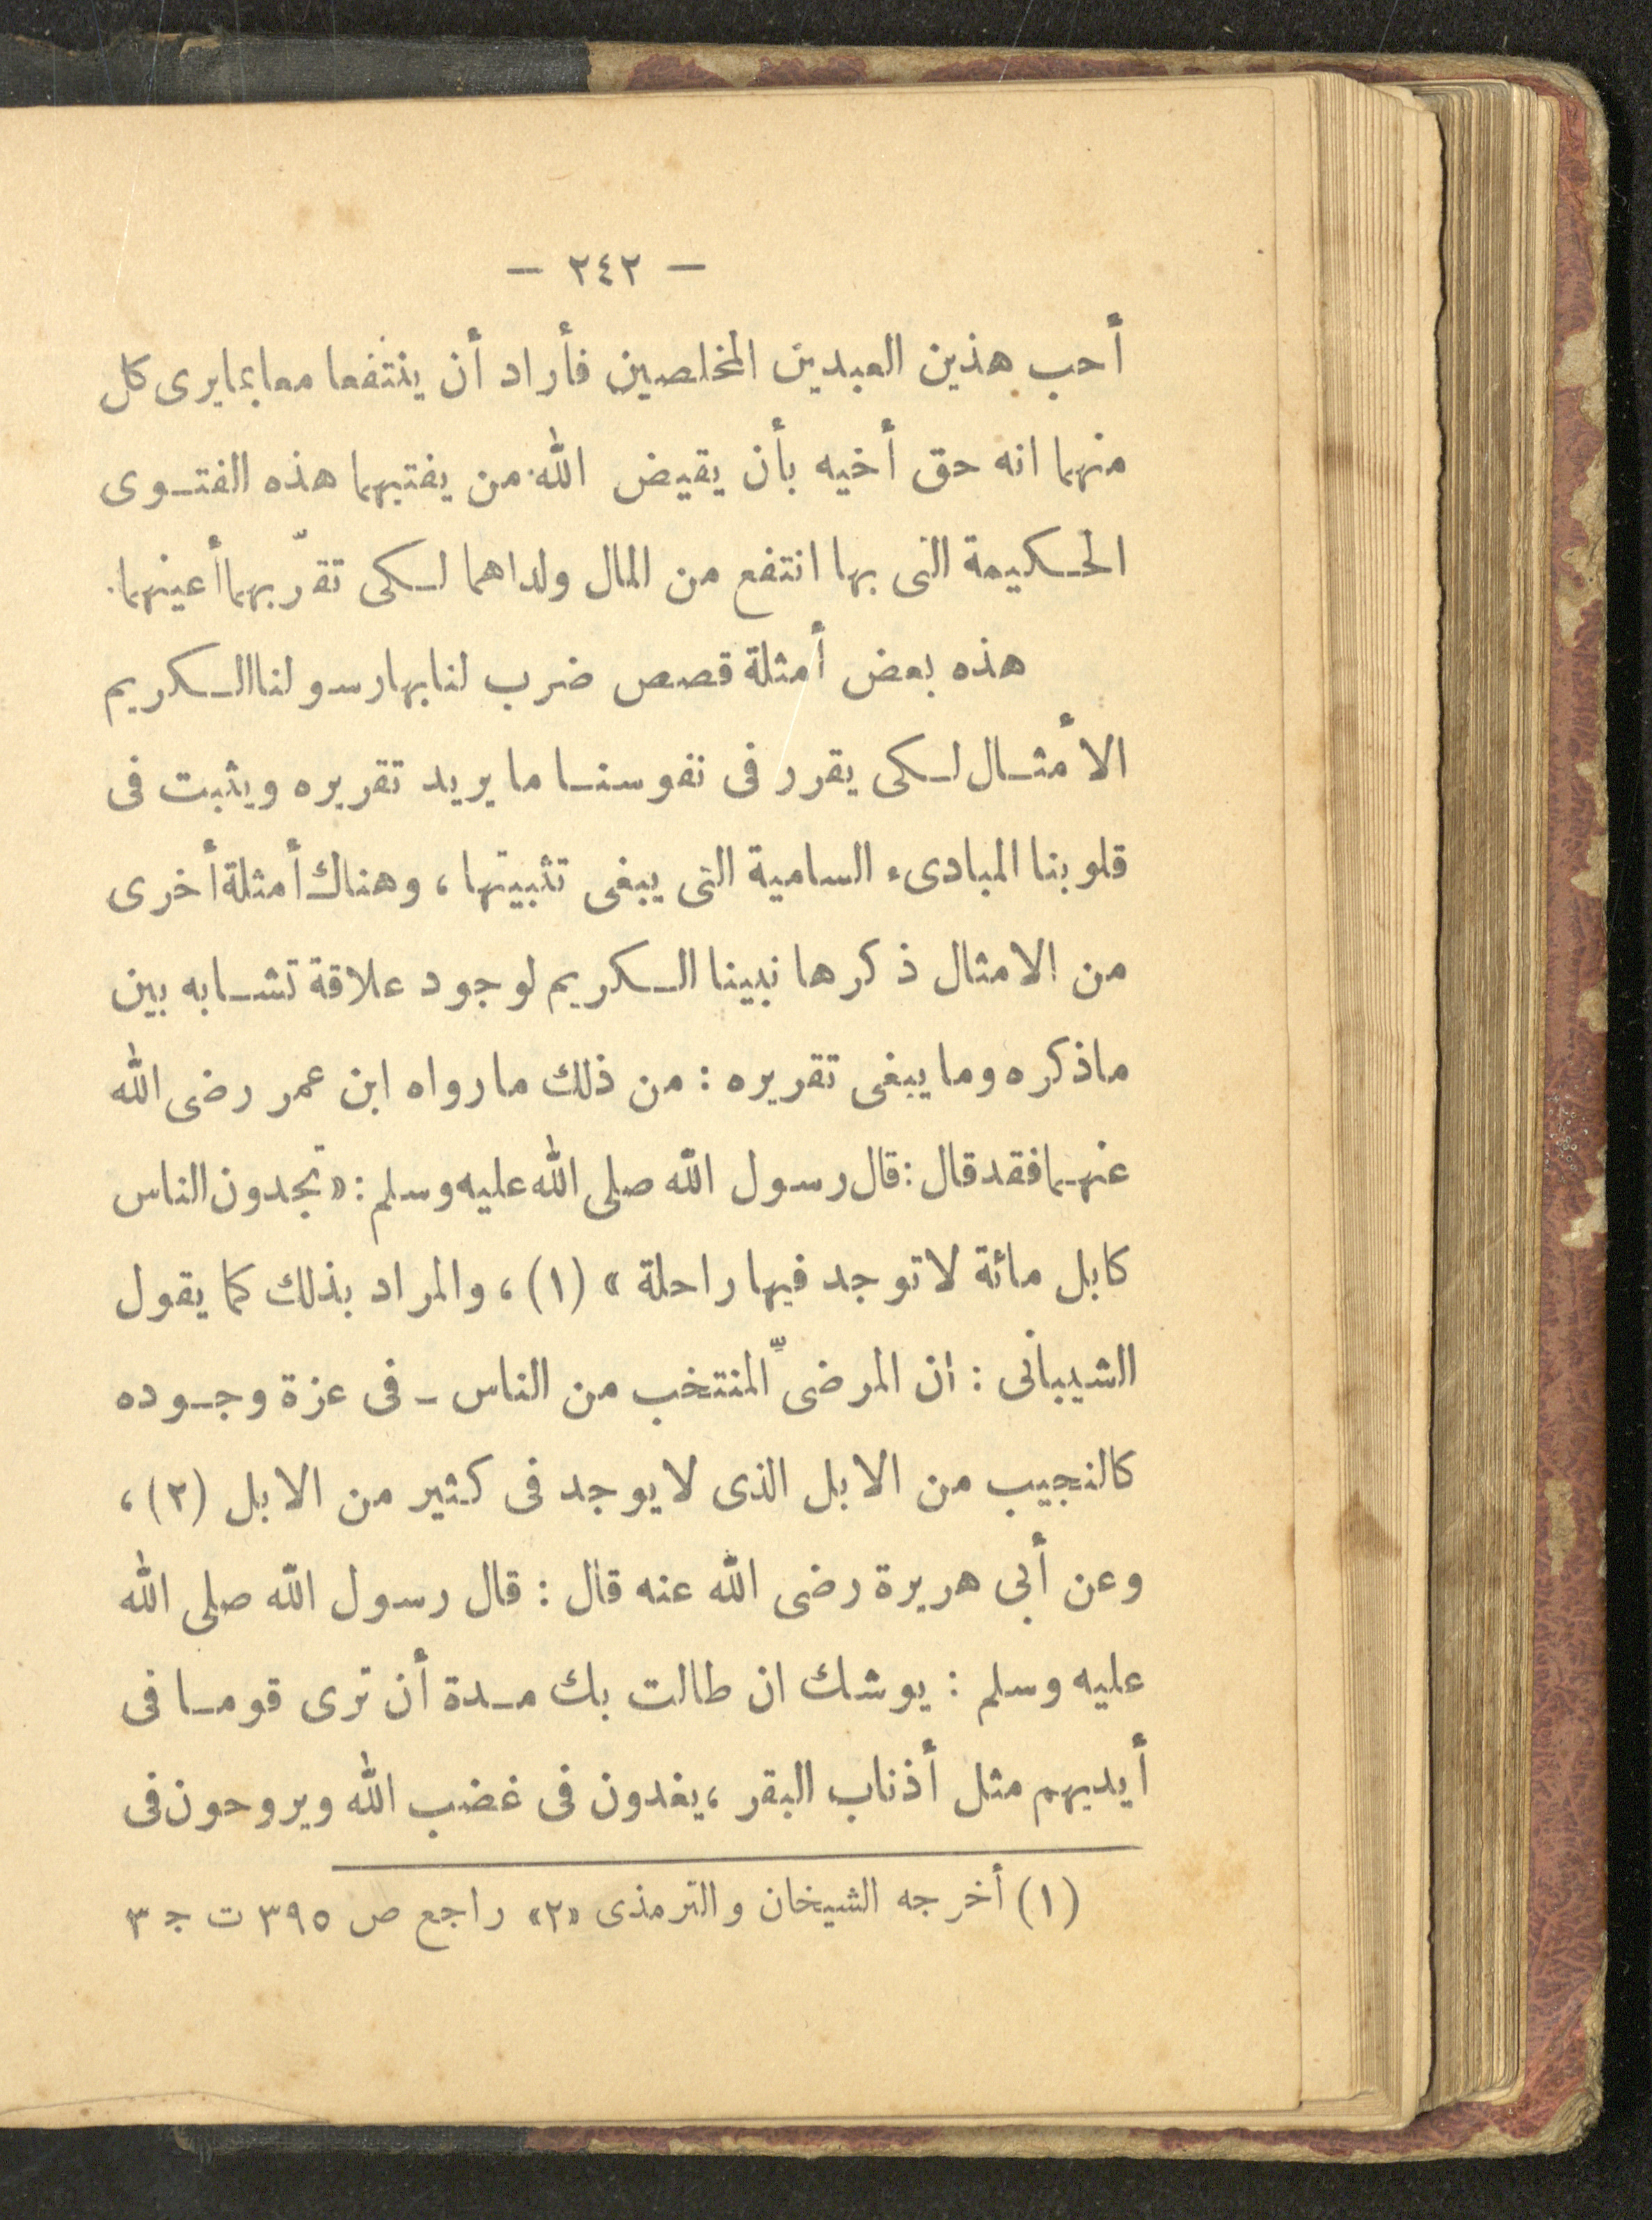 — ٢٤٢ —
أحب هذين العبدين المخلصين فأراد أن ينتفعا معا بما يرى كل
منهما انه حق أخيه بأن يقيض الله من يفتيهما هذه الفتوى
الحكيمة التى بها انتفع من المال ولداهما لكى تقرّ بهما أعينهما.
هذه بعض أمثلة قصص ضرب لنا بها رسولنا الكريم
الأمثال لكى يقرر فى نفوسنا ما يريد تقريره ويثبت فى
قلوبنا المبادىء السامية التى يبغى تثبيتها ، وهناك أمثلة أخرى
من الامثال ذكرها نبينا الكريم لوجود علاقة تشابه بين
ماذكره وما يبغى تقريره : من ذلك مارواه ابن عمر رضى الله
عنهما فقد قال : قال رسول الله صلى الله عليه وسلم : « تجدون الناس
كابل مائة لا توجد فيها راحلة » (١) ، والمراد بذلك كما يقول
الشيبانى : ان المرضىِّ المنتخب من الناس - فى عزة وجوده
كالنجيب من الابل الذى لا يوجد فى كثير من الابل (٢) ،
وعن أبى هريرة رضى الله عنه قال : قال رسول الله صلى الله
عليه وسلم : يوشك ان طالت بك مدة أن ترى قوما فى
أيديهم مثل أذناب البقر ، يغدون فى غضب الله ويروحون فى
(١) أخرجه الشيخان والترمذى «٢» راجع ص ٣٩٥ ت ج ٣